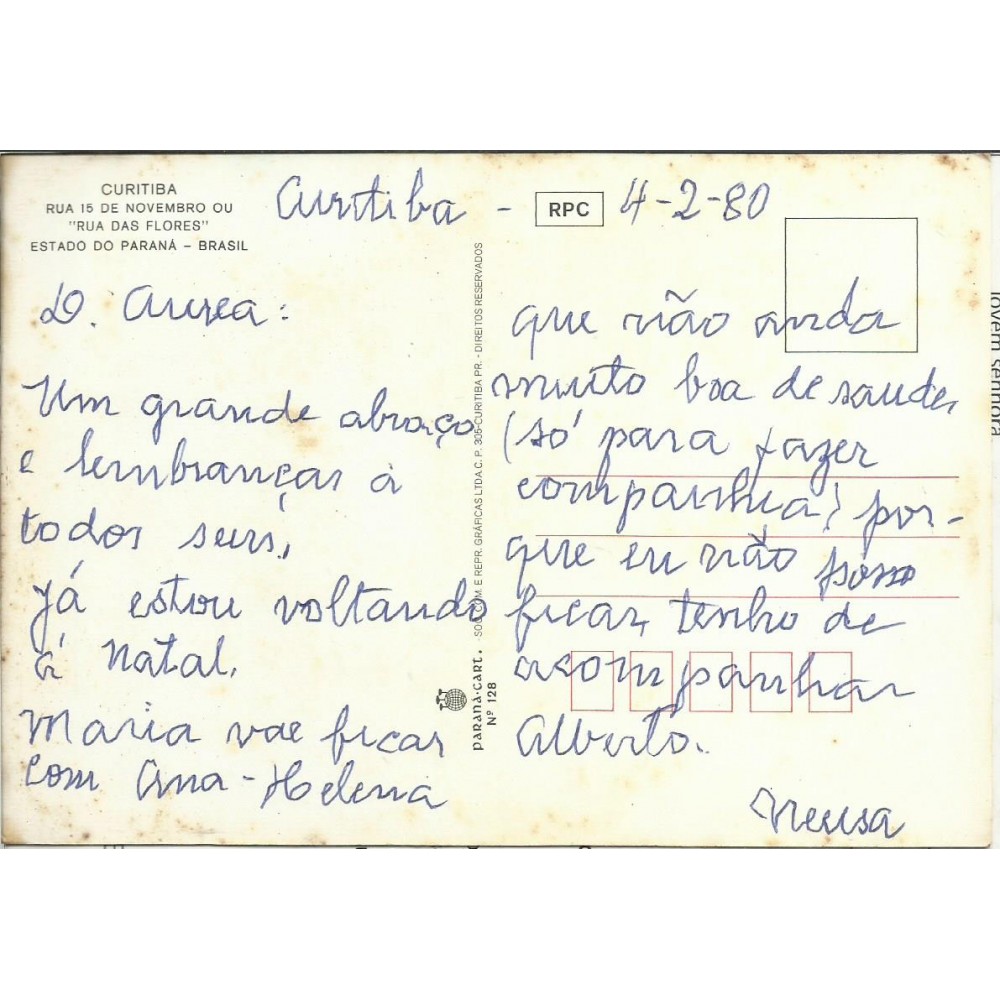 CURITIBA
RUA 15 DE NOVEMBRO OU
"RUA DAS FLORES"
ESTADO DO PARANÁ - BRASIL
Curitiba - 4-2-80
RPC
D. Aurea:
Um grande abraço
e lembranças à
todos seus,
Já estou voltando
à Natal.
Maria vae ficar
com Ana-Helena
que não anda
muito boa de saude,
(só para fazer
companhia) por-
que eu não posso
ficar, tenho de
acompanhar
Alberto.
Neusa
PARANÁ-CART.
Nº 128
SOC. COM. E REPR. GRÁFICAS LTDA. C. P. 306-CURITIBA PR. - DIREITOS RESERVADOS
jovem senhora